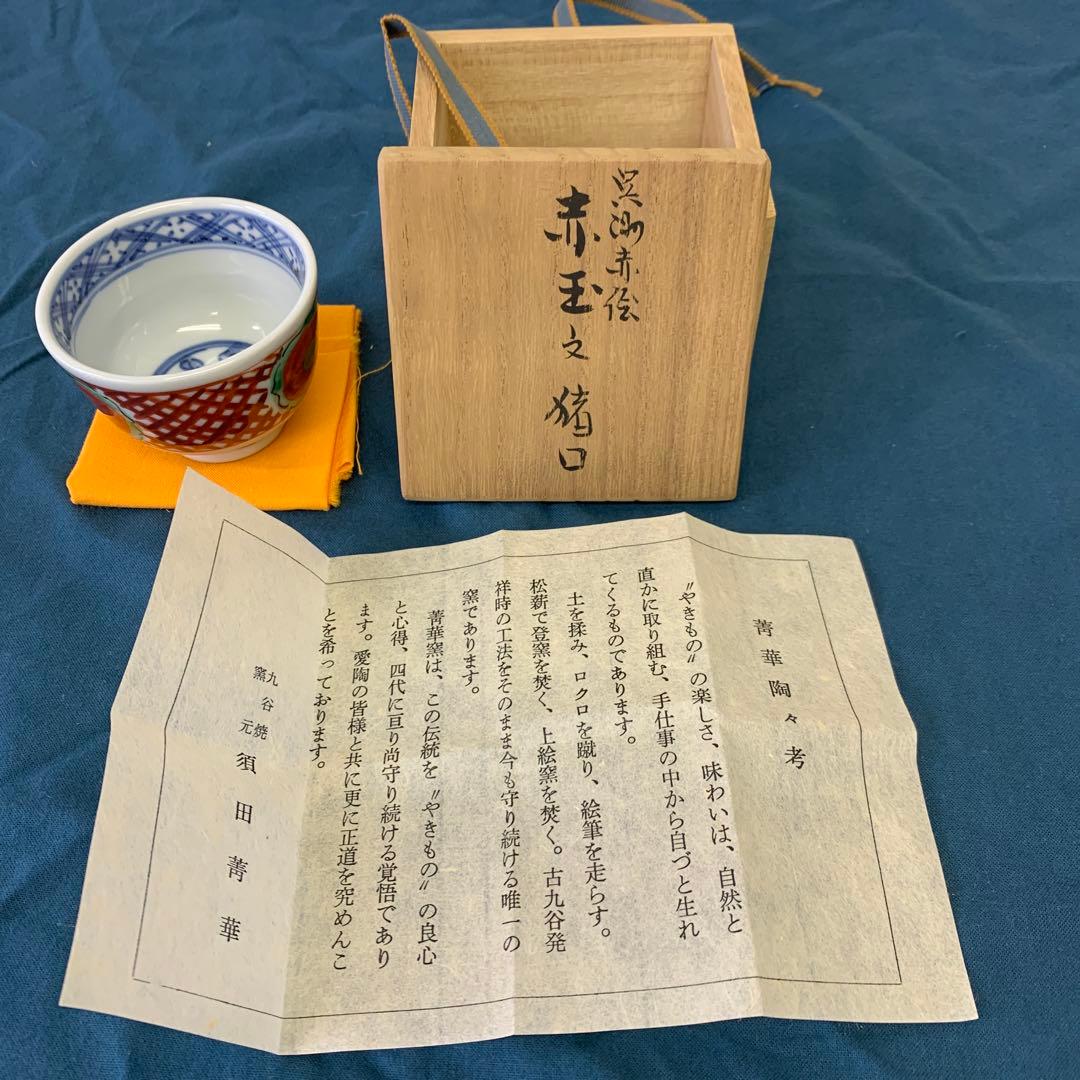 呉洲赤絵
赤玉文猪口
菁華陶々考
〃やきもの〃の楽しさ、味わいは、自然と
直かに取り組む、手仕事の中から自づと生れ
てくるものであります。
土を揉み、ロクロを蹴り、絵筆を走らす。
松薪で登窯を焚く、上絵窯を焚く。古九谷発
祥時の工法をそのまま今も守り続ける唯一の
窯であります。
菁華窯は、この伝統を〃やきもの〃の良心
と心得、四代に亘り尚守り続ける覚悟であり
ます。愛陶の皆様と共に更に正道を究めんこ
とを希っております。
九谷焼
窯元
須田菁華